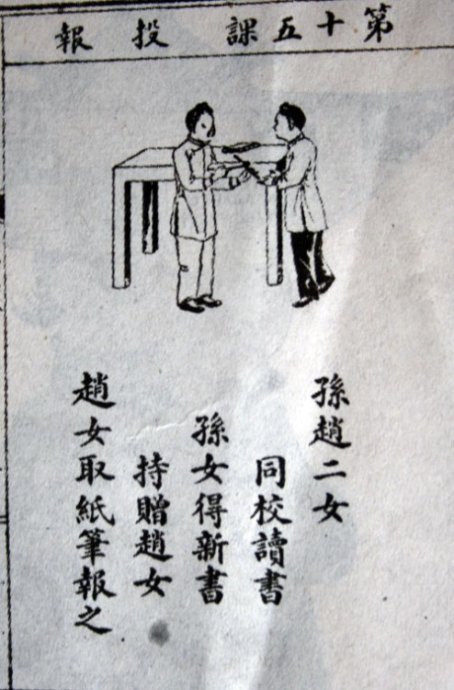 第十五課 投報
孫趙二女
同校讀書
孫女得新書
持贈趙女
趙女取紙筆報之